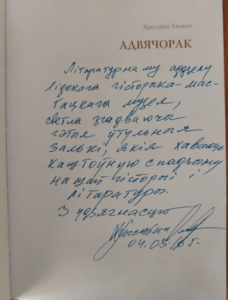 Хрысціна Лялько
АДВЯЧОРАК
Літаратурнаму аддзелу
Лідскага гісторыка-мас-
тацкага музея,
светла згадваючы
гэтыя ўтульныя
залькі, якія хаваюць
каштоўную спадчыну
нашай гісторыі і
літаратуры.
З удзячнасцю
04.05